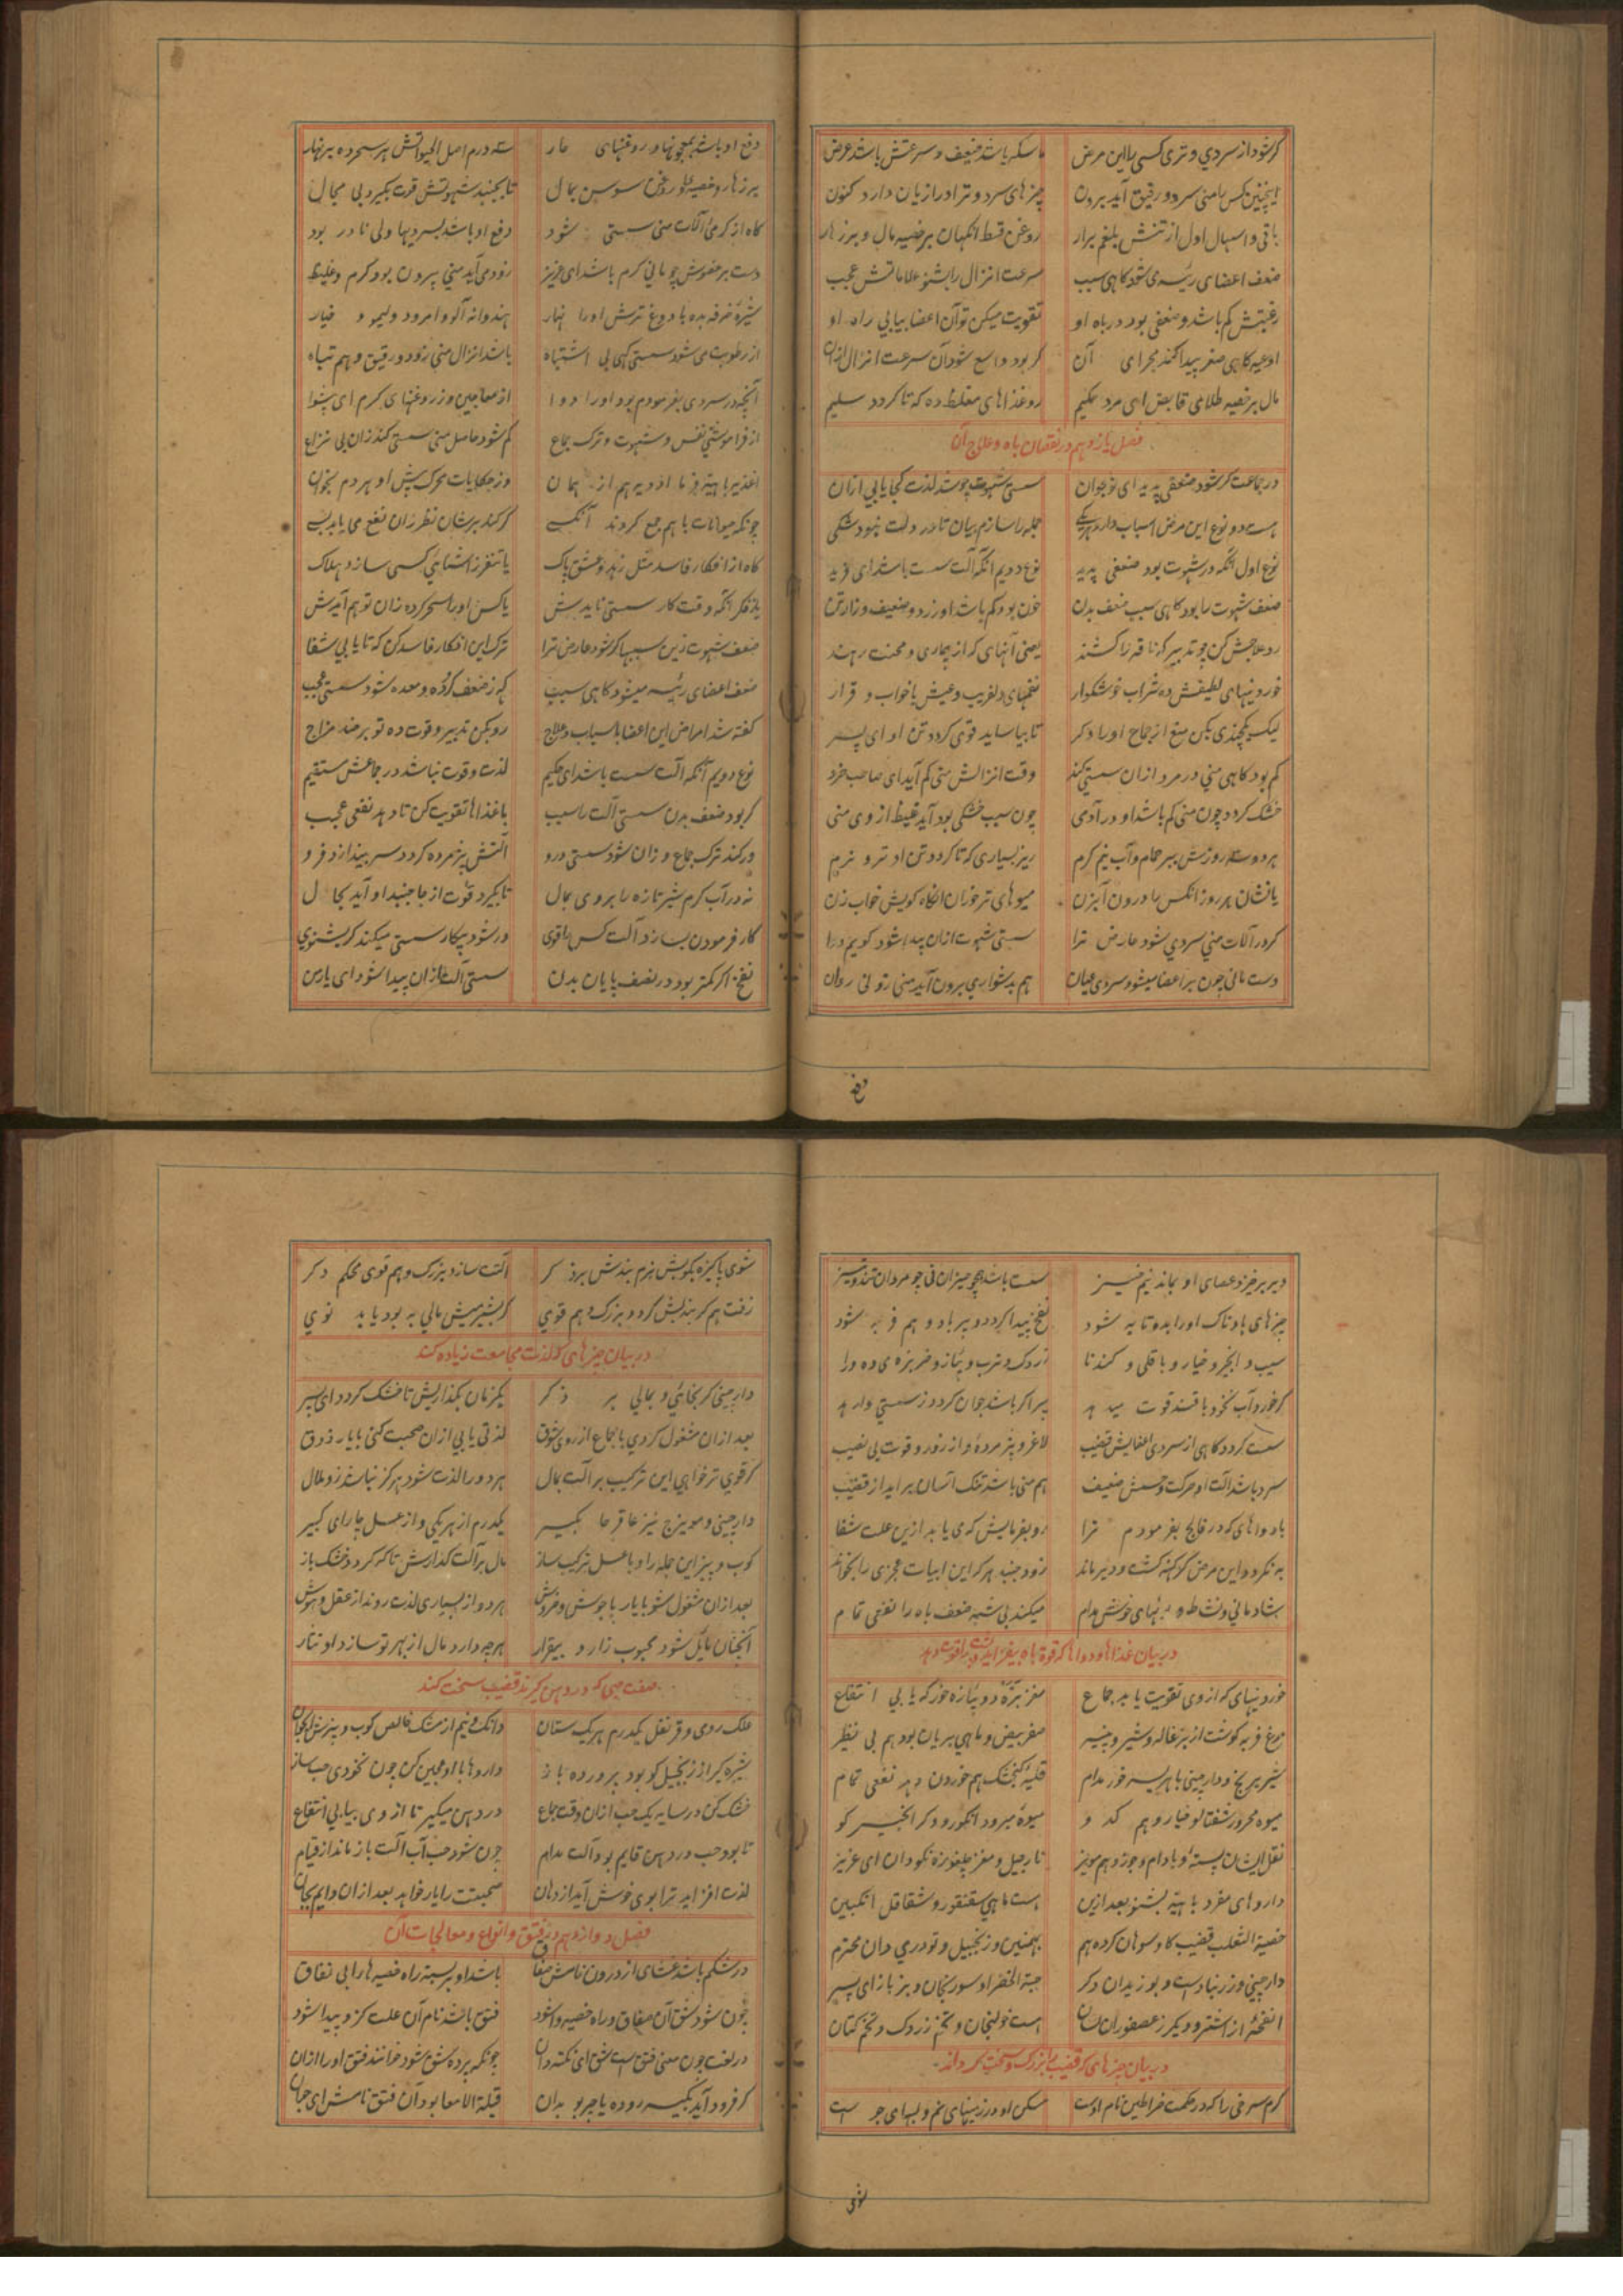 گر شود از سردی و تری کسی را این مرض ماسکه باشد ضعیف و سرعتش باشد عرض
اینچنین کس را منی سرد و رقیق آید برون چیزهای سرد و تر او را زیان دارد کنون
باقی و اسهال اول از تنش بلغم برار روغن قسط انگهان بر خصیه مال و برزهار
ضعف اعضای رئیسه می شود کاهی سبب سرعت انزال را بشنو علاماتش عجب
رغبتش کم باشد و ضعفی بود در باه او تقویت میکن تو آن اعضا بیابی راه او
اوعیه کاهی صغر پیدا کند مجرای آن گر بود واسع شود آن سرعت انزال ازان
مال بر خصیه طلای قابض ای مرد حکیم رو غذاهای مغلظ ده که تا گردد سلیم
فصل یازدهم در نقصان باه و علاج آن
در جماعت گر شود ضعفی پدید ای نوجوان سستی شهوت چو شد لذت کجا یابی ازان
هست دو نوع این مرض اسباب دارد هریکی جمله را سازم بیان تا در دلت نبود شکی
نوع اول آنکه در شهوت بود ضعفی پدید نوع دویم آنکه آلت سست باشد ای فرید
ضعف شهوت را بود کاهی سبب ضعف بدن خون بود کم باشد او زرد و ضعیف و زار تن
رو علاجش کن چو تدبیر که ناقه را کنند یعنی آنهای که از بیماری و محنت رهند
خوردنیهای لطیفش ده شراب خوشگوار نغمهای دلفریب و عیش با خواب و قرار
لیک یکچندی بکن منع از جماع او را دگر تا بیاساید قوی گردد تن او ای پسر
کم بود کاهی منی در مرد ازان سستی کند وقت انزالش منی کم آید ای صاحب خرد
خشک گردد چون منی کم باشد او در آدمی چون سبب خشکی بود آید غلیظ از وی منی
بر دو سه روزش ببر حمام و آب نیم گرم ریز بسیاری که تا گردد تن او تر و نرم
یا نشان هر روز انکس را درون آبزن میوهای تر خوران انگاه گویش خواب زن
گر در آلات منی سردی شود عارض ترا سستی شهوت ازان پیدا شود گویم ورا
دست مانی چون بر اعضا میشود سردی عیان هم بدشواری برون آید منی زو نی روان
دفع
دفع او باشد بمعجونها و روغنهای حار سه درم اصل الحیواتش هر سحر ده بر نهار
بر زهار و خصیه روغن سوسن بمال تا بجنبد شهوتش قوت بگیرد بی مجال
کاه از گرمی آلات منی سستی شود دفع او باشد بسردیها ولی نادر بود
دست بر عضوش چو مانی گرم باشد ای عزیز زود می آید منی بیرون بود گرم و غلیظ
شیره خرفه بده با دوغ ترش او را نهار هندوانه آلو و امرود و لیمو و خیار
از رطوبت می شود سستی کهی بی اشتباه باشد انزال منی زود و رقیق و هم تباه
آنچه در سردی بفرمودم بود او را دوا از معاجین و ز روغنهای گرم ای بینوا
از فراموشی نفس و شهوت و ترک جماع کم شود حاصل منی سستی کند زان بی نزاع
اغذیه باهیه فرما ادویه هم از همان وز حکایات محرک پیش او هر دم بخوان
چونکه حیوانات با هم جمع گردند آنکهی گر کند بر شان نظر زان نفع می یابد
کاه از افکار فاسد مثل زهد و عشق پاک یا تنفر ز اشتهای کسی سازد هلاک
یا ز فکر آنکه وقت کار سستی نایدش یا کس او را سحر کرده زان توهم آیدش
ضعف شهوت زین سببها گر شود عارض ترا ترک این افکار فاسد کن که تا یابی شفا
ضعف اعضای رئیسه میشود کاهی سبب که ز ضعف گرده و معده شود سستی عجب
گفته شد امراض این اعضا باسباب و علاج رو بکن تدبیر و قوت ده تو بر ضد مزاج
نوع دویم آنکه آلت سست باشد ای حکیم لذت و قوت نباشد در جماعش مستقیم
گر بود ضعف بدن سستی آلت را سبب با غذاها تقویت کن تا دهد نفعی عجب
ور کند ترک جماع و زان شود سستی درو آلتش پژمرده گردد سر بیندازد فرو
نه در آب گرم شیر تازه را بروی بمال تا بگیرد قوت از جا جنبد او آید بحال
کار فرمودن بسازد آلت کس را قوی ور شود بیکار سستی میکند گر بشنوی
نفخ اگر کمتر بود در نصف پایان بدن سستی آلت ازان پیدا شود ای یار من
دیر برخیزد عصای او بماند نیم خیز سست باشد همچو حیزان نی چو مردان تند و تیز
چیزهای بادناک او را بده تا به شود نفخ پیدا گردد و پر باد و هم فربه شود
سیب و انجیر و خیار و باقلی و گندنا زردک و ترب و پیاز و خربزه می ده ورا
گر خورد آب نخود با قند قوت میدهد پیر اگر باشد جوان گردد ز سستی وارهد
سست گردد کاهی از سردی اعضایش قضیب لاغر و پژمرده و از زور و قوت بی نصیب
سرد باشد آلت او حرکت و حسش ضعیف هم منی باشد تنک آسان براید از قضیب
با دواهای که در فالج بفرمودم ترا رو بفرمایش که می یابد ازین علت شفا
به نگردد این مرض گر کهنه گشت و دیر ماند زود جنبد هر که این ابیات مجربی را بخواند
شادمانی و نشاط و بویهای خوش مدام میکند بی شبه ضعف باه را نفعی تمام
در بیان غذاها و دواها که قوة باه بیفزاید و بدن را قوت دهد
خوردنیهای که از وی تقویت یابد جماع مغز بره و دوپیازه خور که یابی انتفاع
مرغ فربه گوشت از بزغاله و شیر و پنیر صفر بیض و ماهی بریان بود هم بی نظیر
شیر برنج و دارچینی با هریسه خور مدام قلیه گنجشک هم خوردن دهد نفعی تمام
میوه محرور شفتالو خیار و هم کدو میوه مبرود انگور و دگر انجیر گو
نقل ایشان پسته و بادام و جوز و هم مویز نارجیل و مغز چلغوزه نکو دان ای عزیز
داروهای مفرد باهیه بشنو بعد ازین هست ماهی سقنقور و شقاقل انگبین
خصیة الثعلب قضیب گاو سوهان کرده هم بهمنین و زنجبیل و تودری دان محترم
دارچینی و زرنباد است و بوزیدان دگر حبة الخضرا و سورنجان و بزباز ای پسر
انفحه از اشتر و دیگر ز عصفوران لسان است خولنجان و تخم زردک و تخم کتان
در بیان چیزهای که قضیب را بزرگ و سخت گرداند
کرم سرخی را که در حکمت خراطین نام اوست مسکن او در زمینهای نم و لبهای جوست
شوی
شوی پاکیزه بکوبش نرم بندش بر ذکر آلتت سازد بزرگ و هم قوی محکم دگر
زفت هم گر بندیش گردد بزرگ و هم قوی گر بشیر میش مالی به بود یابد نوی
در بیان چیزهای که لذت مجامعت زیاده کند
دارچینی گر بخائی و بمالی بر ذکر یکزمان بگذاریش تا خشک گردد ای پسر
بعد ازان مشغول گردی با جماع از روی شوق لذتی یابی ازان صحبت کنی با یار ذوق
گر قوی تر خواهی این ترکیب بر آلت بمال هر دو را لذت شود هرگز نباشد زو ملال
دارچینی و مویزج نیز عاقرحا بگیر یکدرم از هر یکی و از عسل چار ای کبیر
کوب و بیز این جمله را و با عسل ترکیب ساز مال بر آلت گذارش تا که گردد خشک باز
بعد ازان مشغول شو با یار با جوش و خروش هر دو از بسیاری لذت روند از عقل و هوش
آنچنان مایل شود محبوب زار و بیقرار هرچه دارد مال از بهر تو سازد او نثار
صفت حبی که در دهن گیرند قضیب سخت کند
علک رومی و قرنفل یکدرم هر یک ستان دانک و نیم از مشک خالص کوب و بیزش انجوان
شیره گیر از زنجبیل کو بود پرورده باز داروها با او عجین کن چون نخودی حب ساز
خشک کن در سایه یک حب ازان وقت جماع در دهن میگیر تا از وی بیابی انتفاع
تا بود حب در دهن قایم بود آلت مدام چون شود حب آب آلت باز ماند از قیام
لذت افزاید ترا بوی خوش آید از دهان صحبتت را یار خواهد بعد ازان دایم بجان
فصل دوازدهم در فتق و انواع و معالجات آن
در شکم باشد غشای از درون نامش صفاق باشد او بر بسته راه خصیه ها را بی نفاق
چون شود شق آن صفاق و راه خصیه وا شود فتق باشد نام آن علت کزو پیدا شود
در لغت چون معنی فتق است شق ای نکته دان چونکه پرده شق شود خوانند فتق او را ازان
گر فرود آید بکیسه روده یا چربو بدان قیلة الامعا بود آن فتق نامش ای جوان